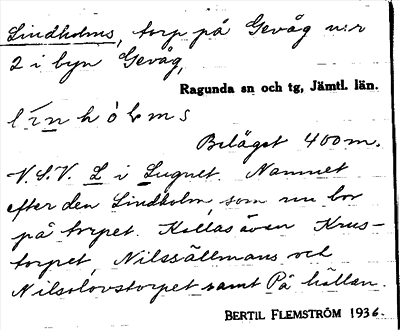 Lindholms, torp på Gevåg n:r
2 i byn Gevåg,
Ragunda sn och tg, Jämtl. län.
línhòlms
Beläget 400 m.
V.S.V. L i Lugnet. Namnet
efter den Lindholm, som nu bor
på torpet. Kallas även Krus-
torpet, Nilssällmans och
Nilsolovstorpet samt På hällan.
BERTIL FLEMSTRÖM 1936.